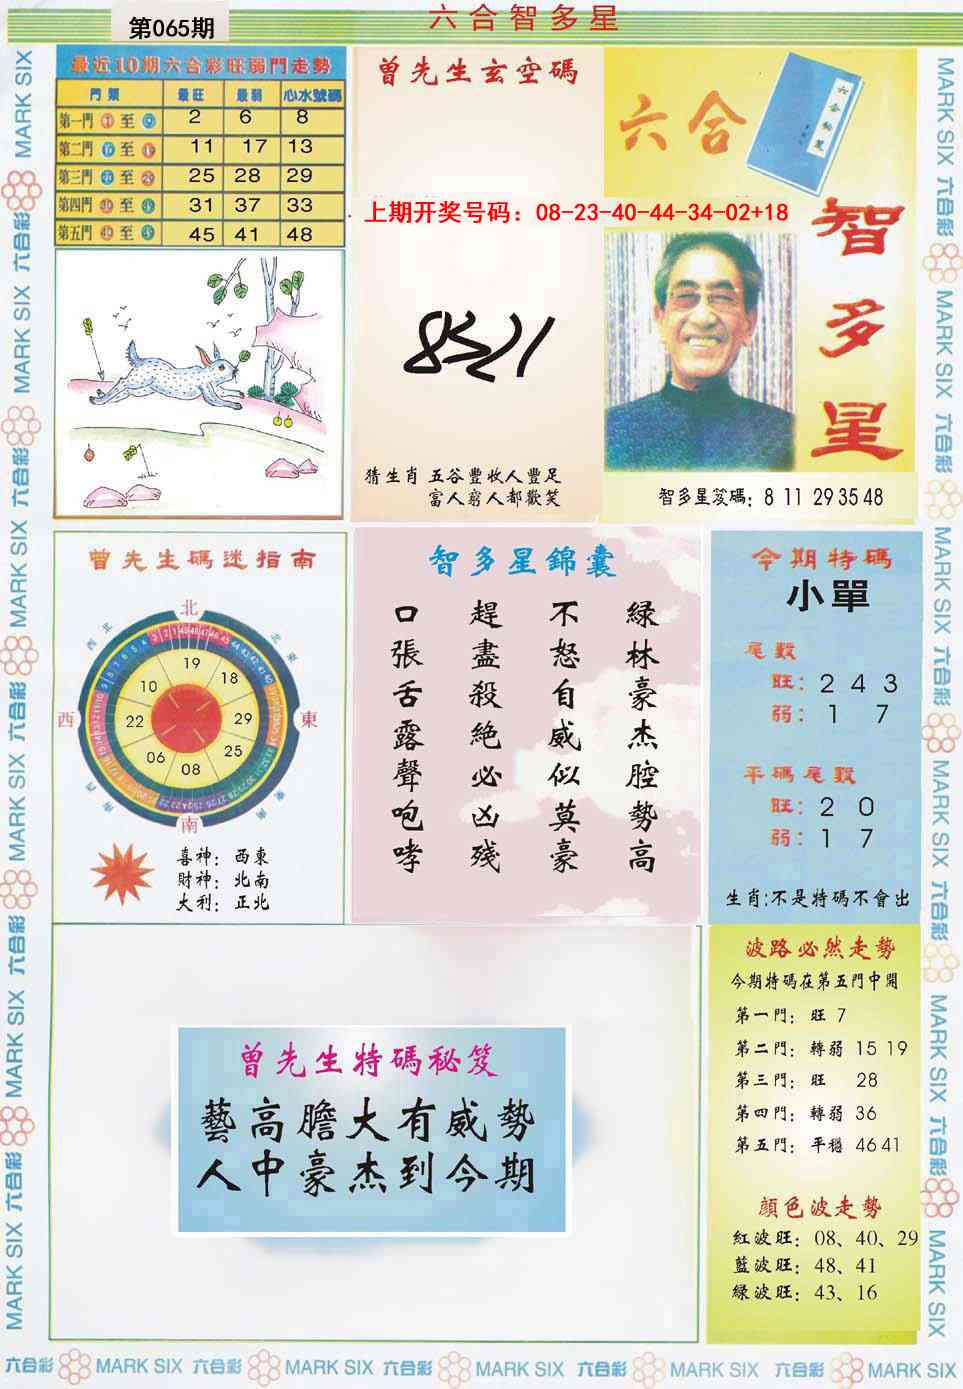 第065期
六合智多星
最近10期六合彩旺弱門走勢
門類 最旺 最弱 心水號碼
第一門 至 2 6 8
第二門 至 11 17 13
第三門 至 25 28 29
第四門 至 31 37 33
第五門 至 45 41 48
曾先生玄空碼
上期开奖号码：08-23-40-44-34-02+18
猜生肖 五谷豐收人豐足
富人窮人都歡笑
六合
智多星
智多星笈碼：8 11 29 35 48
曾先生碼迷指南
北
西
東
南
19
18
29
25
08
06
22
10
喜神：西東
財神：北南
大利：正北
智多星錦囊
綠林豪杰腔勢高
不怒自威似莫豪
趕盡殺絕必凶殘
口張舌露聲咆哮
今期特碼
小單
尾數
旺：2 4 3
弱：1 7
平碼尾數
旺：2 0
弱：1 7
生肖:不是特碼不會出
曾先生特碼秘笈
藝高膽大有威勢
人中豪杰到今期
波路必然走勢
今期特碼在第五門中開
第一門：旺 7
第二門：轉弱 15 19
第三門：旺 28
第四門：轉弱 36
第五門：平穩 46 41
顔色波走勢
紅波旺：08、40、29
藍波旺：48、41
綠波旺：43、16
六合彩 MARK SIX 六合彩 MARK SIX 六合彩 MARK SIX 六合彩 MARK SIX 六合彩 MARK SIX